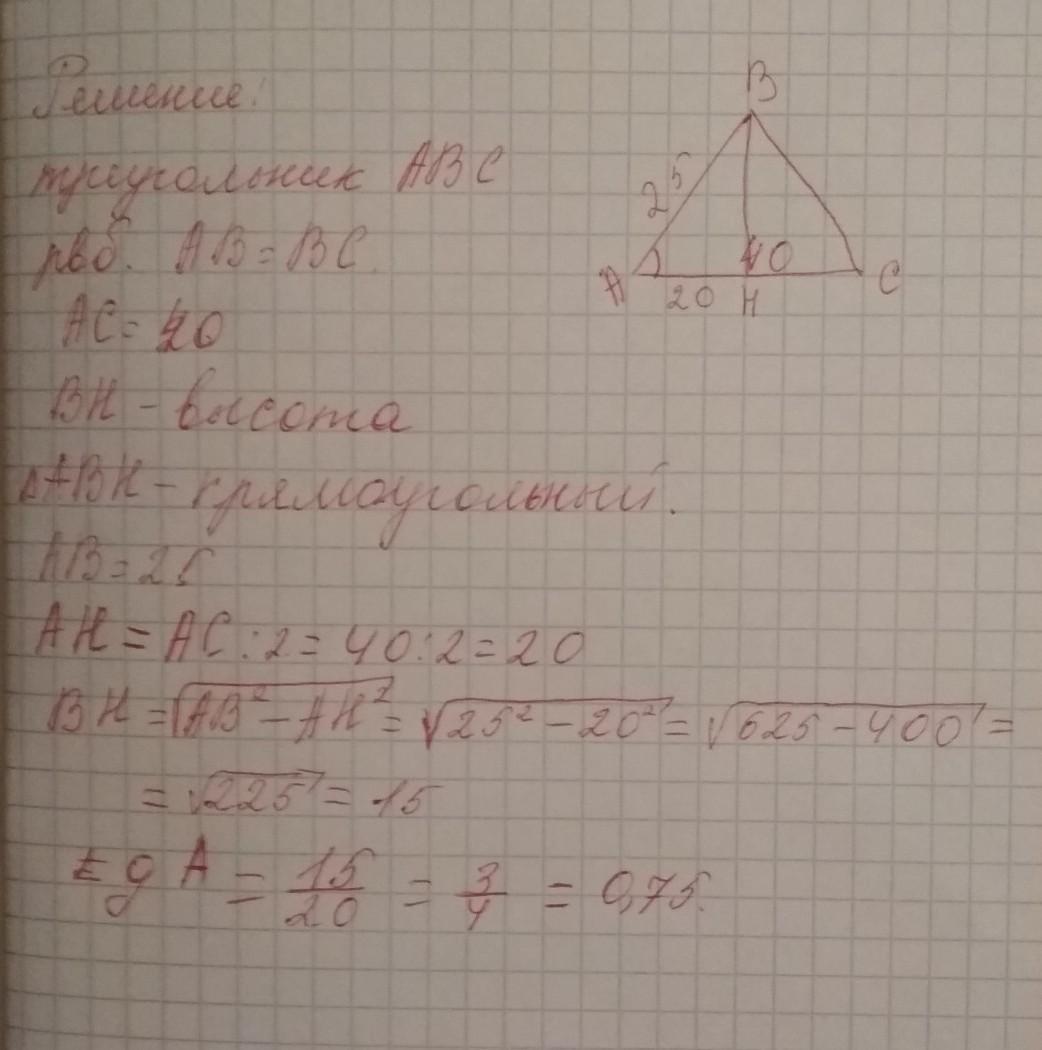 Решение:
треугольник ABC
рвб. AB = BC.
AC = 40
BH - высота
∆ABH - прямоугольный.
AB = 25
AH = AC : 2 = 40 : 2 = 20
BH = √AB² - AH² = √25² - 20² = √625 - 400 =
= √225 = 15
tg A = 15/20 = 3/4 = 0,75.
B
25
40
A
20
H
C